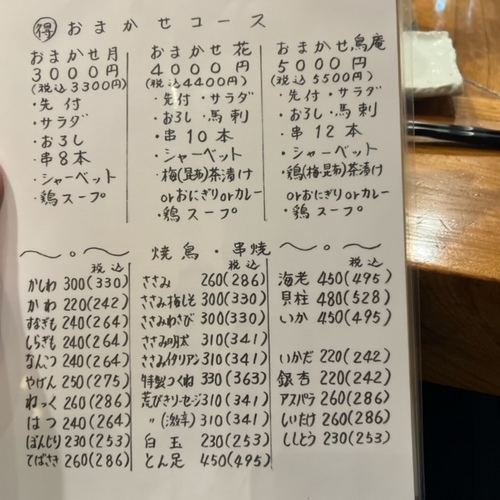 得 おまかせコース
おまかせ月
3000円
(税込3300円)
・先付
・サラダ
・おろし
・串8本
・シャーベット
・鶏スープ
おまかせ花
4000円
(税込4400円)
・先付・サラダ
・おろし・馬刺
・串10本
・シャーベット
・梅(昆布)茶漬け
orおにぎりorカレー
・鶏スープ
おまかせ鳥庵
5000円
(税込5500円)
・先付・サラダ
・おろし・馬刺
・串12本
・シャーベット
・鶏(梅昆布)茶漬け
orおにぎりorカレー
・鶏スープ
〜。〜 焼鳥・串焼 〜。〜
税込
かしわ 300(330)
かわ 220(242)
すなぎも 240(264)
しらぎも 240(264)
なんこつ 240(264)
やげん 250(275)
ねっく 260(286)
はつ 240(264)
ぼんじり 230(253)
てばさき 260(286)
税込
ささみ 260(286)
ささみ梅しそ 300(330)
ささみわさび 300(330)
ささみ明太 310(341)
ささみイタリアン 310(341)
特製つくね 330(363)
荒びきソーセージ 310(341)
〃(激辛) 310(341)
白玉 230(253)
とん足 450(495)
税込
海老 450(495)
貝柱 480(528)
いか 450(495)
いかだ 220(242)
銀杏 220(242)
アスパラ 260(286)
しいたけ 260(286)
ししとう 230(253)